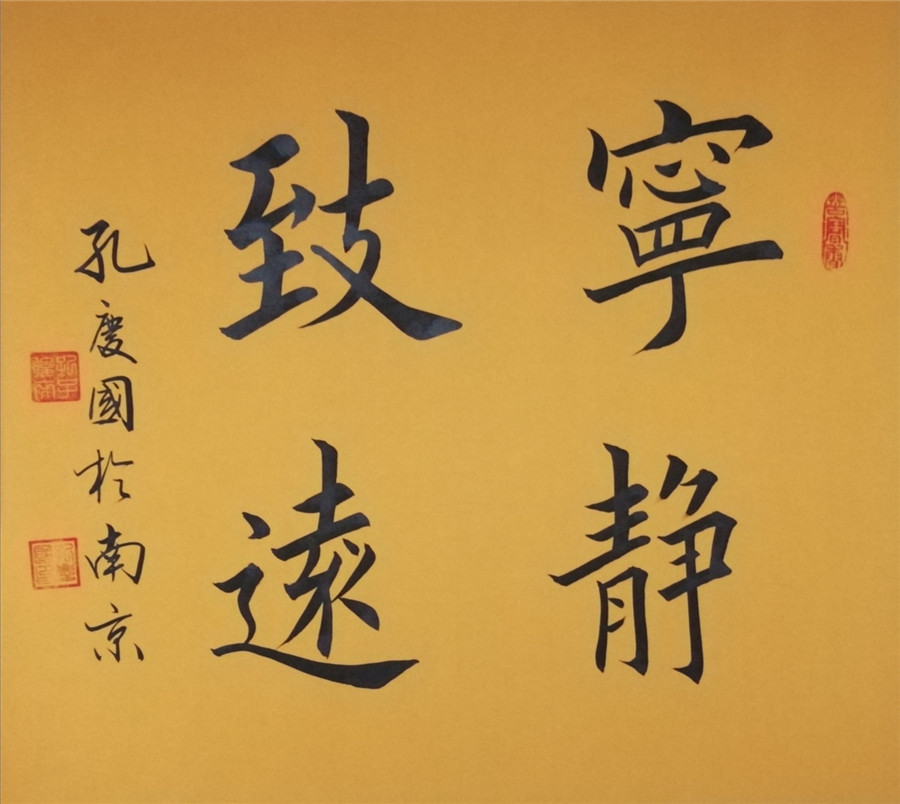 寧靜
致遠
孔慶國於南京